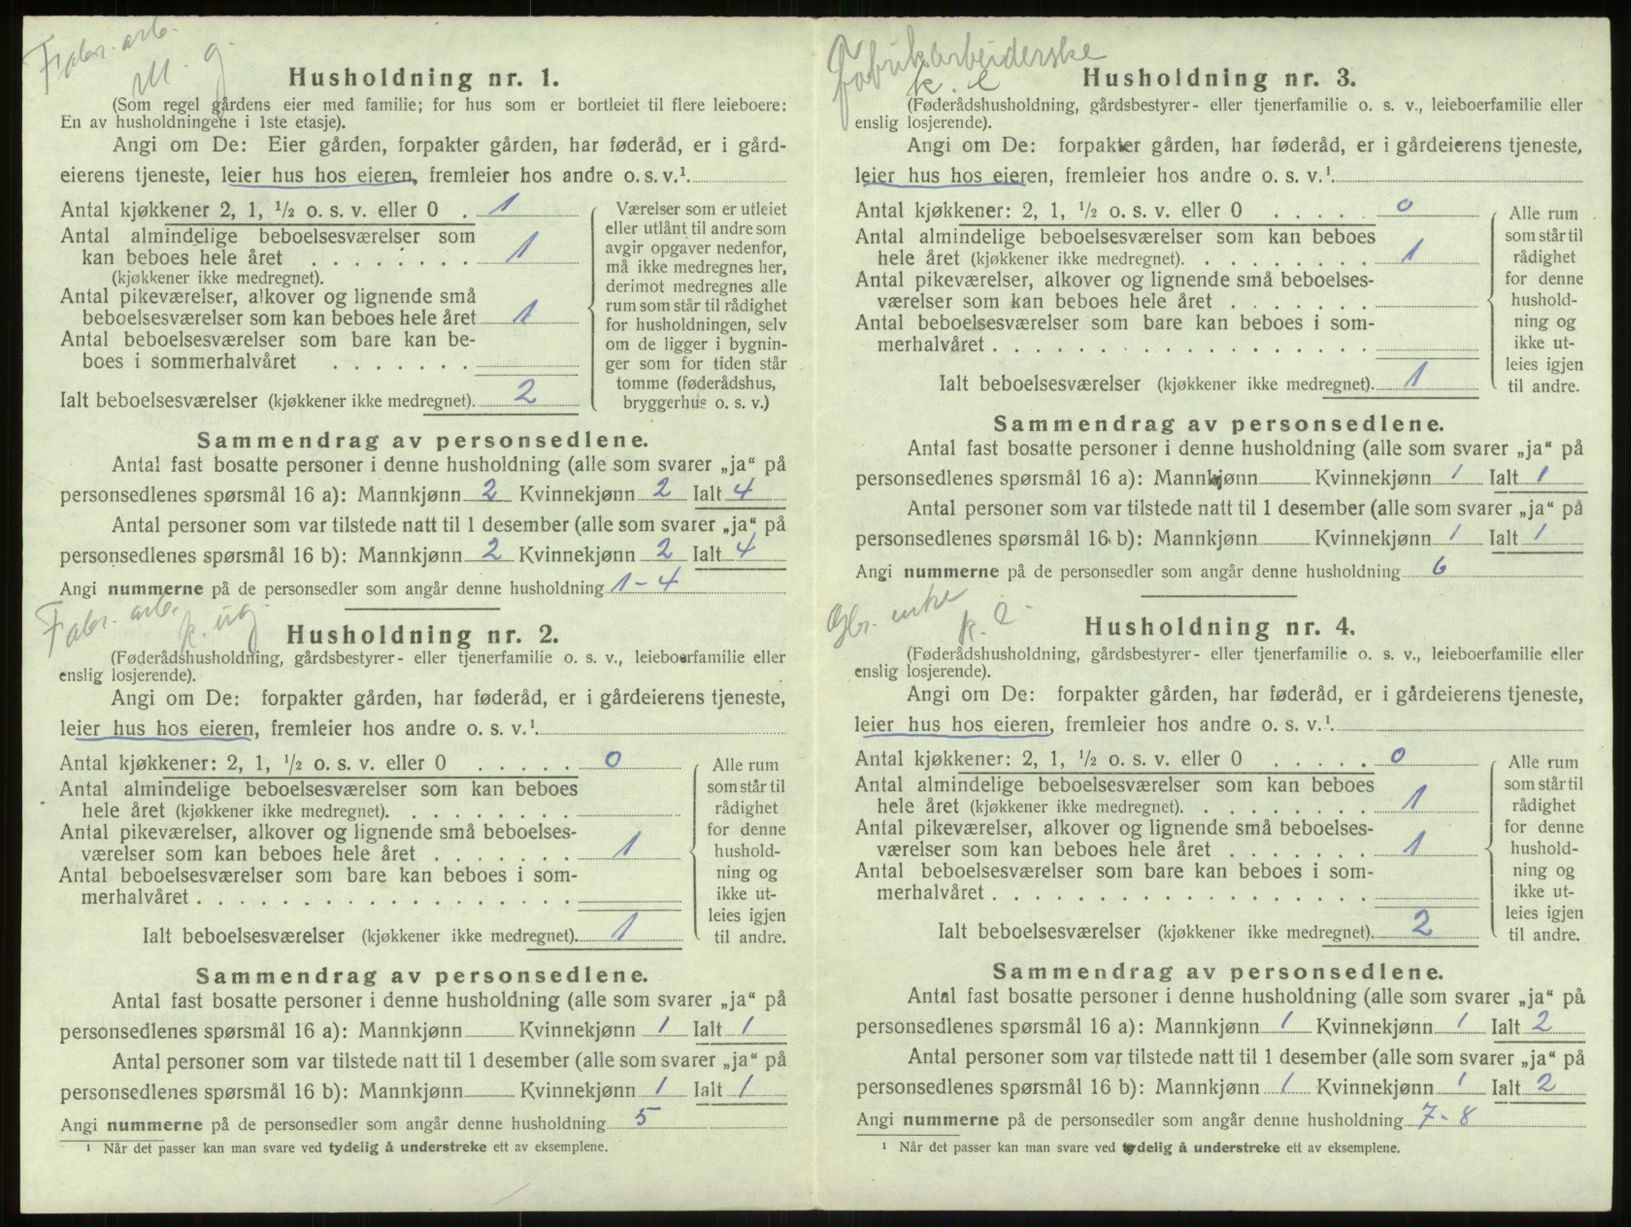 Fabr. arb.
m. g.
Husholdning nr. 1.
(Som regel gårdens eier med familie; for hus som er bortleiet til flere leieboere:
En av husholdningene i 1ste etasje).
Angi om De: Eier gården, forpakter gården, har føderåd, er i gård-
eierens tjeneste, leier hus hos eieren, fremleier hos andre o. s. v.¹
Antal kjøkkener 2, 1, ½ o. s. v. eller 0 . 1
Antal almindelige beboelsesværelser som
kan beboes hele året . . . . . . . . 1
(kjøkkener ikke medregnet).
Antal pikeværelser, alkover og lignende små
beboelsesværelser som kan beboes hele året 1
Antal beboelsesværelser som bare kan be-
boes i sommerhalvåret . . . . . . .
Ialt beboelsesværelser (kjøkkener ikke medregnet). 2
Værelser som er utleiet
eller utlånt til andre som
avgir opgaver nedenfor,
må ikke medregnes her,
derimot medregnes alle
rum som står til rådighet
for husholdningen, selv
om de ligger i bygnin-
ger som for tiden står
tomme (føderådshus,
bryggerhus o. s. v.)
Sammendrag av personsedlene.
Antal fast bosatte personer i denne husholdning (alle som svarer „ja“ på
personsedlenes spørsmål 16 a): Mannkjønn 2 Kvinnekjønn 2 Ialt 4
Antal personer som var tilstede natt til 1 desember (alle som svarer „ja“ på
personsedlenes spørsmål 16 b): Mannkjønn 2 Kvinnekjønn 2 Ialt 4
Angi nummerne på de personsedler som angår denne husholdning 1-4
Fabr. arb.
k. ug
Husholdning nr. 2.
(Føderådshusholdning, gårdsbestyrer- eller tjenerfamilie o. s. v., leieboerfamilie eller
enslig losjerende).
Angi om De: forpakter gården, har føderåd, er i gårdeierens tjeneste,
leier hus hos eieren, fremleier hos andre o. s. v.¹
Antal kjøkkener: 2, 1, ½ o. s. v. eller 0 . . . . . 0
Antal almindelige beboelsesværelser som kan beboes
hele året (kjøkkener ikke medregnet). . . . . . . . .
Antal pikeværelser, alkover og lignende små beboelses-
værelser som kan beboes hele året . . . . . . . 1
Antal beboelsesværelser som bare kan beboes i som-
merhalvåret . . . . . . . . . . . . . . . . . .
Ialt beboelsesværelser (kjøkkener ikke medregnet). 1
Alle rum
som står til
rådighet
for denne
hushold-
ning og
ikke ut-
leies igjen
til andre.
Sammendrag av personsedlene.
Antal fast bosatte personer i denne husholdning (alle som svarer „ja“ på
personsedlenes spørsmål 16 a): Mannkjønn Kvinnekjønn 1 Ialt 1
Antal personer som var tilstede natt til 1 desember (alle som svarer „ja“ på
personsedlenes spørsmål 16 b): Mannkjønn Kvinnekjønn 1 Ialt 1
Angi nummerne på de personsedler som angår denne husholdning 5
¹ Når det passer kan man svare ved tydelig å understreke ett av eksemplene.
Fabrikarbeiderske
k. e
Husholdning nr. 3.
(Føderådshusholdning, gårdsbestyrer- eller tjenerfamilie o. s. v., leieboerfamilie eller
enslig losjerende).
Angi om De: forpakter gården, har føderåd, er i gårdeierens tjeneste,
leier hus hos eieren, fremleier hos andre o. s. v.¹
Antal kjøkkener: 2, 1, ½ o. s. v. eller 0 . . . . . 0
Antal almindelige beboelsesværelser som kan beboes
hele året (kjøkkener ikke medregnet). . . . . . . . . 1
Antal pikeværelser, alkover og lignende små beboelses-
værelser som kan beboes hele året . . . . . . .
Antal beboelsesværelser som bare kan beboes i som-
merhalvåret . . . . . . . . . . . . . . . . . .
Ialt beboelsesværelser (kjøkkener ikke medregnet). 1
Alle rum
som står til
rådighet
for denne
hushold-
ning og
ikke ut-
leies igjen
til andre.
Sammendrag av personsedlene.
Antal fast bosatte personer i denne husholdning (alle som svarer „ja“ på
personsedlenes spørsmål 16 a): Mannkjønn Kvinnekjønn 1 Ialt 1
Antal personer som var tilstede natt til 1 desember (alle som svarer „ja“ på
personsedlenes spørsmål 16 b): Mannkjønn Kvinnekjønn 1 Ialt 1
Angi nummerne på de personsedler som angår denne husholdning 6
Gbr. enke
k. e.
Husholdning nr. 4.
(Føderådshusholdning, gårdsbestyrer- eller tjenerfamilie o. s. v., leieboerfamilie eller
enslig losjerende).
Angi om De: forpakter gården, har føderåd, er i gårdeierens tjeneste,
leier hus hos eieren, fremleier hos andre o. s. v.¹
Antal kjøkkener: 2, 1, ½ o. s. v. eller 0 . . . . . 0
Antal almindelige beboelsesværelser som kan beboes
hele året (kjøkkener ikke medregnet). . . . . . . . . 1
Antal pikeværelser, alkover og lignende små beboelses-
værelser som kan beboes hele året . . . . . . . 1
Antal beboelsesværelser som bare kan beboes i som-
merhalvåret . . . . . . . . . . . . . . . . . .
Ialt beboelsesværelser (kjøkkener ikke medregnet). 2
Alle rum
som står til
rådighet
for denne
hushold-
ning og
ikke ut-
leies igjen
til andre.
Sammendrag av personsedlene.
Antal fast bosatte personer i denne husholdning (alle som svarer „ja“ på
personsedlenes spørsmål 16 a): Mannkjønn 1 Kvinnekjønn 1 Ialt 2
Antal personer som var tilstede natt til 1 desember (alle som svarer „ja“ på
personsedlenes spørsmål 16 b): Mannkjønn 1 Kvinnekjønn 1 Ialt 2
Angi nummerne på de personsedler som angår denne husholdning 7-8
¹ Når det passer kan man svare ved tydelig å understreke ett av eksemplene.